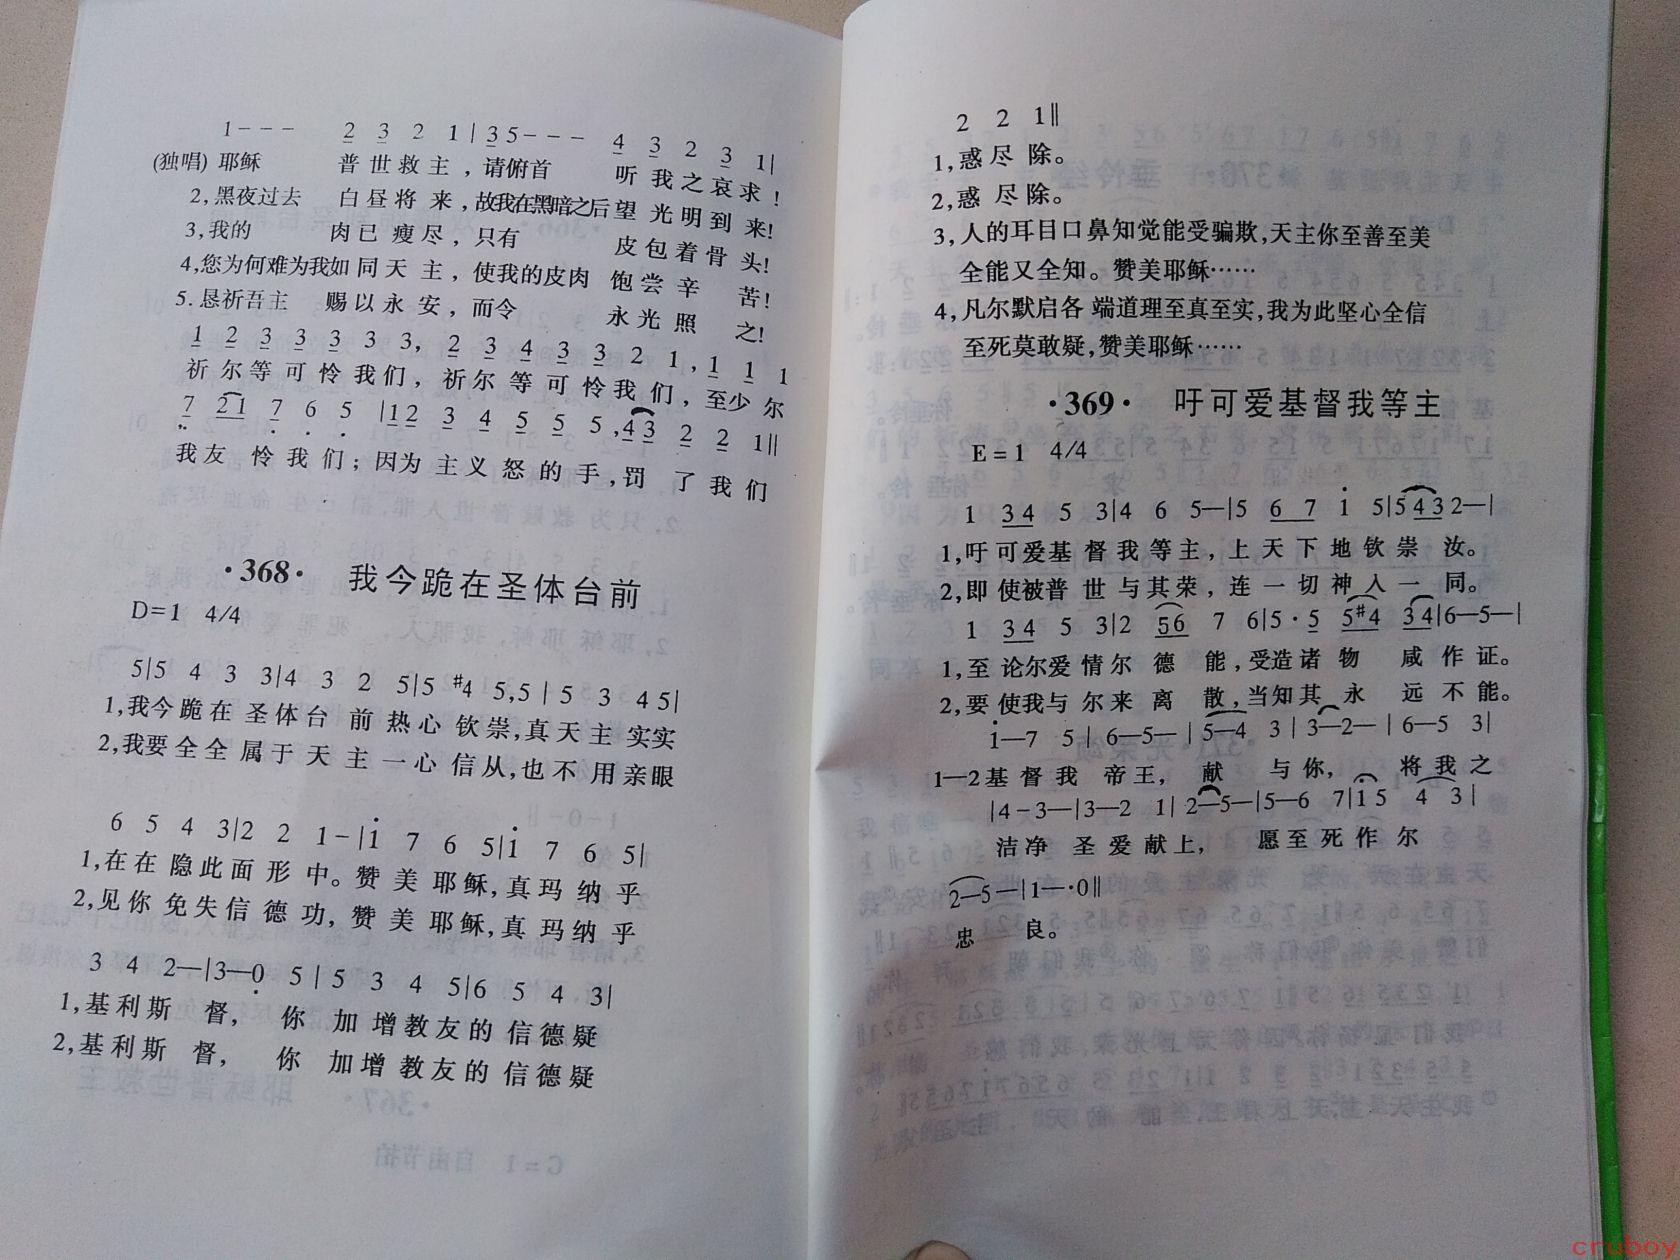 1 - - - 2 3 2 1 | 3 5 - - - 4 3 2 3 1 |
(独唱) 耶稣 普世救主，请俯首 听我之哀求！
2,黑夜过去 白昼将来，故我在黑暗之后望光明到来!
3,我的 肉已瘦尽，只有 皮包着骨头!
4,您为何难为我如同天主，使我的皮肉 饱尝辛苦!
5.恳祈吾主 赐以永安，而令 永光照之!
1 2 3 3 3 3 3, 2 3 4 3 3 2 1, 1 1 1
祈尔等可怜我们，祈尔等可怜我们，至少尔
7 21 7 6 5 | 12 3 4 5 5 5, 43 2 2 1 ‖
我友怜我们；因为主义怒的手,罚了我们
·368· 我今跪在圣体台前
D=1 4/4
5|5 4 3 3|4 3 2 5|5 #4 5,5 | 5 3 4 5|
1,我今跪在圣体台前热心钦崇,真天主实实
2,我要全全属于天主一心信从,也不用亲眼
6 5 4 3|2 2 1-|i 7 6 5|i 7 6 5|
1,在在隐此面形中。赞美耶稣,真玛纳乎
2,见你免失信德功,赞美耶稣,真玛纳乎
3 4 2—|3—0 5 | 5 3 4 5|6 5 4 3|
1,基利斯督， 你加增教友的信德疑
2,基利斯督， 你加增教友的信德疑
2 2 1‖
1,惑尽除。
2,惑尽除。
3,人的耳目口鼻知觉能受骗欺,天主你至善至美
全能又全知。赞美耶稣……
4,凡尔默启各端道理至真至实,我为此坚心全信
至死莫敢疑,赞美耶稣……
·369· 吁可爱基督我等主
E=1 4/4
1 34 5 3|4 6 5—|5 6 7 i 5|5 43 2—|
1,吁可爱基督我等主,上天下地钦崇汝。
2,即使被普世与其荣,连一切神人一同。
1 34 5 3|2 56 7 6|5·5 5#4 34|6—5—|
1,至论尔爱情尔德能,受造诸物咸作证。
2,要使我与尔来离散,当知其永远不能。
i—7 5 | 6—5— | 5—4 3 | 3—2— | 6—5 3|
1—2基督我帝王， 献与你， 将我之
|4-3—|3—2 1| 2—5—|5—6 7|i 5 4 3|
洁净圣爱献上， 愿至死作尔
2—5—|1—·0‖
忠 良。
cruboy